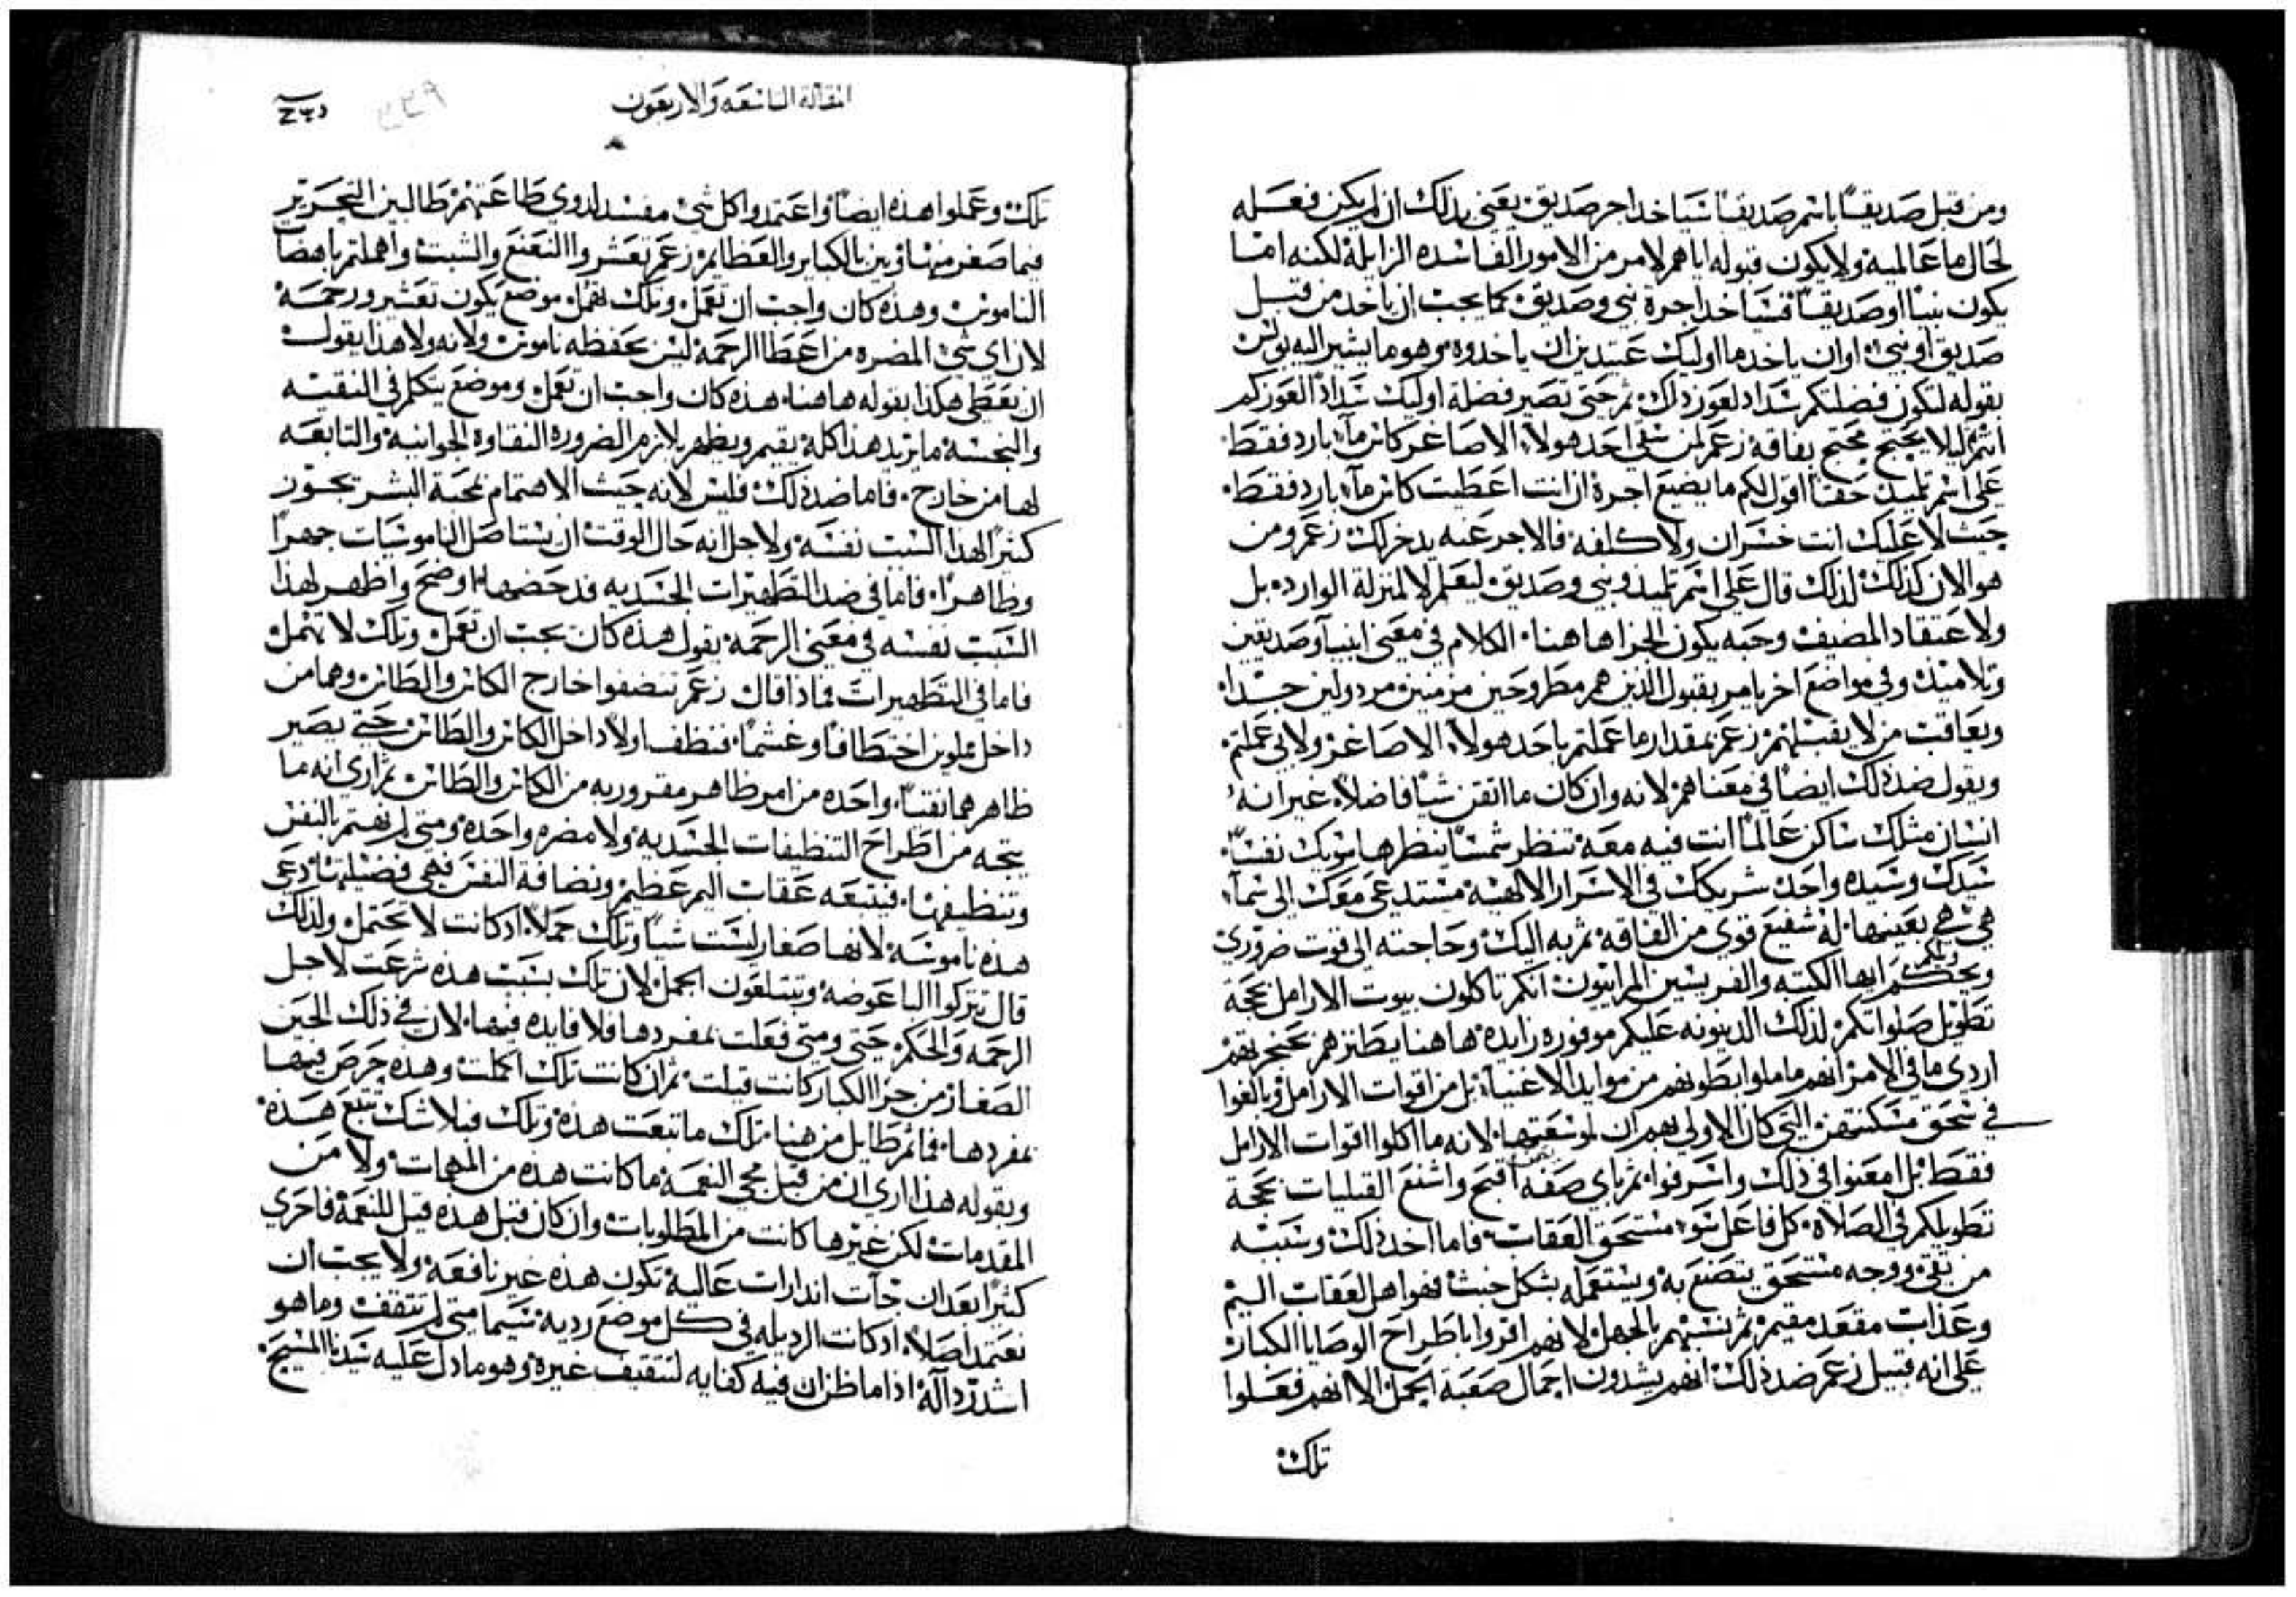 ومن قبل صديقًا باسم صديقًا سياخد اجر صديق يعني بذلك ان لم يكن فعله
لحال ما عالمية ولا يكون قبوله اياهم لامر من الامور الفاسده الزايلة لكنه اما
يكون نبيا او صديقًا فسياخد اجرة نبي وصديق كما يجب ان ياخد من قبل
صديق او نبي او ان ياخدها اوليك عتيدين ان ياخدوه وهو ما يشير اليه بولس
بقوله لتكون فضلتكم سداد لعوز ذاك ثم حتى تصير فضلة اوليك سداد العوزكم
انتم ليلا يحتج محتج بفاقه زعم لمن سقي احد هولاء الاصاغر كاس مآء بارد فقط
على اسم تلميد حقا اقول لكم ما يضيع اجرة ان انت اعطيت كاس مآء بارد فقط
حيث لا عليك انت خسران ولا كلفه فالاجر عنه يدخر لك زعم ومن
هو الان كذلك لذلك قال على اسم تلميد ونبي وصديق ليعلم لا لمنزلة الوارده بل
ولاعتقاد المضيف وحبه يكون الجزا هاهنا الكلام في معنى انبيآ وصديقين
وتلاميد وفي مواضع اخر يامر بقبول الذين هم مطروحين مزمنين مردولين جدا
ويعاقب من لا يقبلهم زعم بمقدار ما عملتم باحد هولاء الاصاغر ولابي عملتم
ويقول ضد ذلك ايضًا في معناهم لانه وان كان ما اتقن شيًا فاضلا غير انه
انسان مثلك ساكن عالمًا انت فيه معه تنظر شمسًا ينظرها سويك نفسًا
سيدك وسيده واحد شريكك في الاسرار الالهية مستدعى معك الى سمآء
هي هي بعينها له شفيع قوي من الفاقة ثم به اليك وحاجته الى قوت ضروري
ويحكم ايها الكتبه والفريسين المراييون انكم تاكلون بيوت الارامل بحجة
تطويل صلواتكم لذلك الدينونه عليكم موفوره زايده هاهنا يطنز هم بحنجرتهم
اردى ما في الامر انهم ماملوا بطونهم من موايد الاغنيآء بل من اقوات الارامل وبالغوا
في سحق مسكنتهن التي كان الاولى بهم ان لوسعتها لانه ما اكلوا اقوات الارامل
فقط بل امعنوا في ذلك واسرفوا ثم باي صفه اقبح واشنع القبليات بحجة
تطويلكم في الصلاة كل فاعل سوء مستحق العقاب فاما اخد ذلك وسببه
من تقى ووجه مستحق يتضنع به ويستعمله بشكل خبث فهو اهل العقاب اليم
وعذاب مقعد مقيم ثم نسبهم بالجهل لانهم اقروا باطراح الوصايا الكبار
على انه قبيل زعم ضد ذلك انهم يشدون احمال صعبة الحمل الا انهم فعلوا
تلك
المقالة التاسعة والاربعون
تلك وعملوا هذه ايضًا واعتمدوا كل شي مفسد لذوي طاعتهم طالبين التحرير
فيما صغر منها وبين بالكباير والعظايم زعم تعشروا النعنع والشبت واهملتم باهضات
الناموس وهذه كان واجب ان تعمل وتلك تهمل موضع يكون تعشير ورحمة
لان اي شي المضره من اعطا الرحمة ليس بحفظه ناموس ولانه ولا هذا يقول
ان نعطي هكذا بقوله هاهنا هذه كان واجب ان تعمل وموضع يتكلم في النقية
والنجسة ما يزيد هذا كلة يقيم ويظهر بلازم الضروره النقاوة الجوانية والتابعة
لها من خارج فاما ضد ذلك فليس لانه حيث الاهتمام بمحبة البشر تجوز
كثيرًا لهذا السبب نفسة ولاجل انه حال الوقت ان يستاصل الناموسيات جهرًا
وظاهرًا فاما في ضد التطهيرات الجسديه فدحضها اوضح واظهر لهذا
السبب نفسه في معنى الرحمه يقول هذه كان يجب ان تعمل وتلك لا تهمل
فاما في التطهيرات فماذا قال زعم تنضفوا خارج الكاس والطاس وهما من
داخل مملوين اختطافًا وغشمًا فنظف اولا داخل الكاس والطاس حتى يصير
ظاهرهما نقيًا واحده من امر ظاهر مقر وربه من الكاس والطاس ثم ارى انه ما
يتجه من اطراح التنظيفات الجسديه ولا مضره واحده ومتى لم نهتم بالنفس
وتنظيفها فيتبعه عقاب اليم عظيم ونضافة النفس فهي فضيلتها دعى
هده ناموسة لانها صغار ليست شيا وتلك حملا ادكانت لا تحتمل ولذلك
قال تتركوا الباعوضه وتبتلعون الجمل لان تلك بسبب هذه شرعت لاجل
الرحمه والحكم حتى ومتى فعلت بمفردها فلا فايده فيها لان في ذلك الحين
الصغار من جزا الكبار كانت قبلت ثم ان كانت تلك اكملت وهذه حرص فيها
بمفردها فما ثم طايل من هنا تلك ما تبعت هذه وتلك فبلا شك تتبع هذة
وبقوله هذا ارى ان من قبل مجي النعمة ما كانت هذه من المهمات ولا من
المقدمات لكن غيرها كانت من المطلوبات وان كان قبل هذه قبل للنعمة فاحرى
كثيرًا بعد ان جآت اندارات عالية تكون هذه غير نافعة ولا يجب ان
نعتمد اصلا ادكانت الرديله في كل موضع رديه سيما متى لم تتقف وما هو
اشد رداآة اذا ما ظن ان فيه كفايه لتتقيف غيرة وهو ما دل عليه سيدنا المسيح